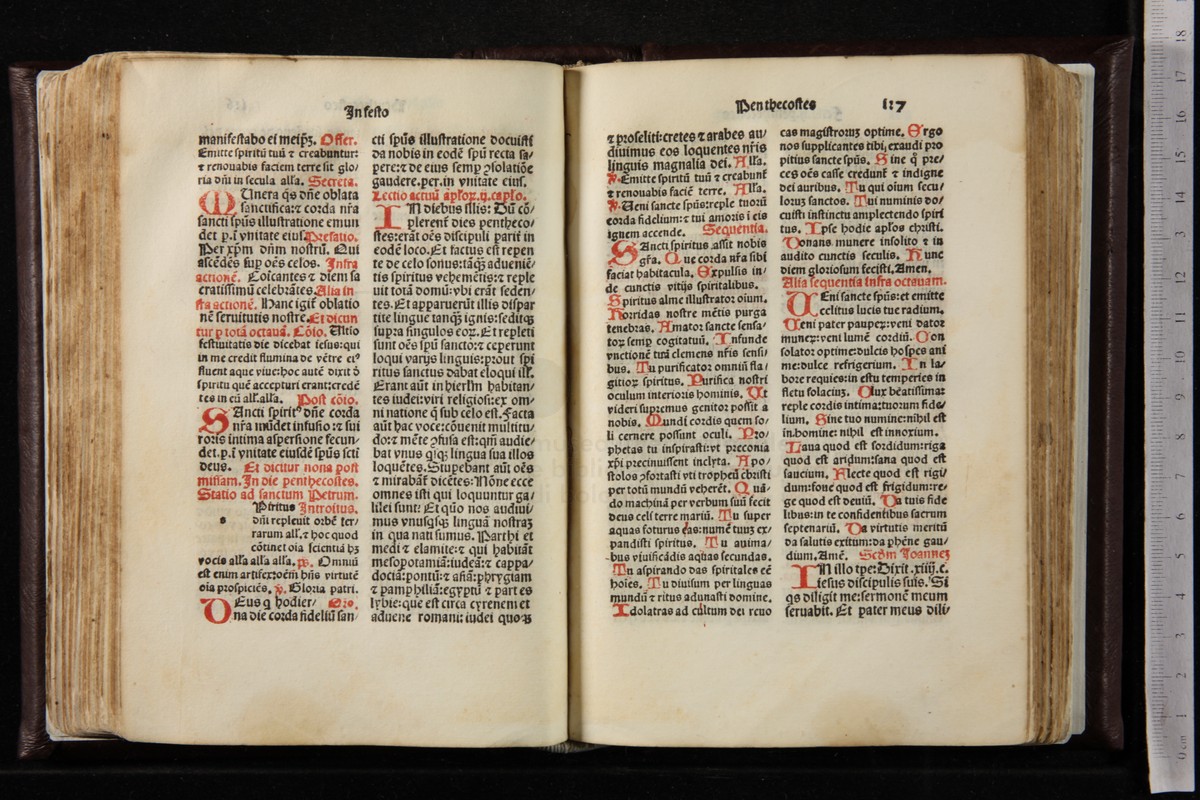 In festo
manifestabo ei meipꝫ. Offer.
Emitte spiritū tuū ⁊ creabuntur:
⁊ renouabis faciem terre sit glo/
ria dñi in secula alľa. Secreta.
MUnera qs dñe oblata
sanctifica:⁊ corda nr̃a
sancti spũs illustratione emun
det p.ĩ vnitate eiusľ. Prefatio.
Per xp̃m dñm nostrū. Qui
ascēdēs sup oēs celos. Infra
actionē. Cōicantes ⁊ diem sa
cratissimū celebrātes. Alia in
fra actionē. Hanc igit̃ oblatio
nē seruitutis nostre. Et dicun
tur p totā octauā. Cōio. Ultio
festiuitatis die dicebat iesus:qui
in me credit flumina de vētre ei⁹
fluent aque viue:hoc autē dixit ð
spiritu quē accepturi erant:credē
tes in eū alľ.alľa. Post cōio.
SAncti spirit⁹ dñe corda
nr̃a mūdet infusio:⁊ sui
roris intima aspersione fecun-
det.p.ĩ vnitate eiusdē spũs scti
deus. Et dicitur nona post
missam. In die penthecostes.
Statio ad sanctum Petrum.
Spiritus Introitus.
dñi repleuit orbē ter/
rarum alľ.⁊ hoc quod
cōtinet oīa scientiā hꝫ
vocis alľa alľa alľa. ps. Omniū
est enim artifex:oēm hñs virtutē
oīa prospiciēs. ℣. Gloria patri.
DEus q hodier/ Oro.
na die corda fideliū san/
cti spũs illustratione docuisti
da nobis in eodē spũ recta sa/
pere:⁊ de eius semp ꝯsolatiōe
gaudere.per.in vnitate eiusľ.
Lectio actuū apľoꝝ.ij.capľo.
IN diebus illis: Dū cō/
plerent̃ dies pentheco/
stes:erāt oēs discipuli parit̃ in
eodē loco. Et factus est repen
te de celo sonus:tāqꝫ aduenīē/
tis spiritus vehemētis:⁊ reple
uit totā domū:vbi erāt seden/
tes. Et apparuerūt illis dispar
tite lingue tanqꝫ ignis:seditqꝫ
supra singulos eoꝝ. Et repleti
sunt oēs spũ sancto:⁊ ceperunt
loqui varijs linguis:prout spi
ritus sanctus dabat eloqui ilľ.
Erant aūt in hierľm habitan/
tes iudei:viri religiosi:ex om/
ni natione q̄ sub celo est. Facta
aūt hac voce:cōuenit multitu/
do:⁊ mēte ꝯfusa est:qm̄ audie/
bat vnus qꝫqꝫ lingua sua illos
loquētes. Stupebant aūt oēs
⁊ mirabāt̃ dicētes: Nōne ecce
omnes isti qui loquuntur ga/
lilei sunt: Et quō nos audiui/
mus vnusqꝫqꝫ linguā nostraꝫ
in qua nati sumus. Parthi et
medi ⁊ elamite:⁊ qui habitāt
mesopotamiā:iudeā:⁊ cappa/
dociā:pontū:⁊ asiā:phrygiam
⁊ pamphiliā:egyptū ⁊ partes
lybie:que est circa cyrenem et
aduene romani: iudei quoqꝫ
Penthecostes 127
⁊ proseliti:cretes ⁊ arabes au/
diuimus eos loquentes nr̃is
linguis magnalia dei. Alľa.
℣. Emitte spiritū tuū ⁊ creabunt̃
⁊ renouabis faciē terre. Alľa.
℣. Ueni sancte spũs:reple tuorū
corda fidelium:⁊ tui amoris ĩ eis
ignem accende. Sequentia.
SAncti spiritus assit nobis
gr̃a. Que corda nr̃a sibi
faciat habitacula. Expulsis in/
de cunctis vitijs spiritalibus.
Spiritus alme illustrator oīum.
Horridas nostre mētis purga
tenebras. Amator sancte sensa/
toꝝ semp cogitatuū. Infunde
vnctionē tuā clemens nr̃is sensi/
bus. Tu purificator omniū fla/
gitioꝝ spiritus. Purifica nostri
oculum interioris hominis. Ut
videri supremus genitor possit a
nobis. Mundi cordis quem so/
li cernere possunt oculi. Pro/
phetas tu inspirasti:vt preconia
xp̃i precinuissent inclyta. Apo/
stolos ꝯfortasti vti tropheū christi
per totū mundū veherēt. Quā/
do machinā per verbum suū fecit
deus celi terre mariū. Tu super
aquas foturus eas:numē tuuꝫ ex/
pandisti spiritus. Tu anima/
bus viuificādis aquas fecundas.
Tu aspirando das spiritales eē
hoīes. Tu diuisum per linguas
mundū ⁊ ritus adunasti domine.
Idolatras ad cultum dei reuo
cas magistroruꝫ optime. Ergo
nos supplicantes tibi exaudi pro
pitius sancte spũs. Sine q̄ pre/
ces oēs casse credunt̃ ⁊ indigne
dei auribus. Tu qui oīum secu/
loruꝫ sanctos. Tui numinis do/
cuisti instinctu amplectendo spiri
tus. Ipse hodie apľos christi.
Donans munere insolito ⁊ in
audito cunctis seculis. Hunc
diem gloriosum fecisti. Amen.
Alia sequentia infra octauam.
UEni sancte spũs:et emitte
celitus lucis tue radium.
Ueni pater pauperꝫ:veni dator
munerꝫ:veni lumē cordiū. Con
solator optime:dulcis hospes ani
me:dulce refrigerium. In la/
bore requies:in estu temperies in
fletu solaciuꝫ. O lux beatissima:
reple cordis intima:tuorum fide/
lium. Sine tuo numine:nihil est
in homine: nihil est innoxium.
Laua quod est sordidum:riga
quod est aridum:sana quod est
saucium. Flecte quod est rigi/
dum:foue quod est frigidum:re-
ge quod est deuiū. Da tuis fide
libus:in te confidentibus sacrum
septenariū. Da virtutis meritū
da salutis exitum:da phēne gau/
dium. Amē. Scðm Joanneꝫ
IN illo tp̄e: Dixit. xiiij. c.
iesus discipulis suis. Si
qs diligit me:sermonē meum
seruabit. Et pater meus dili/